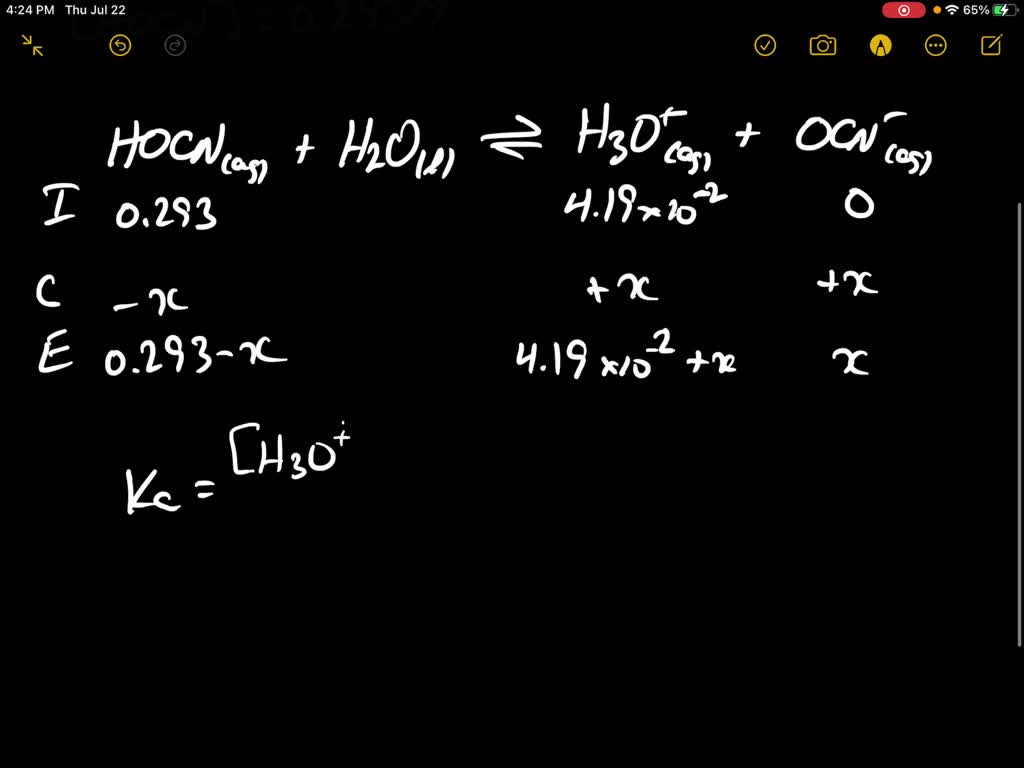 4:24 PM Thu Jul 22 65%
HOCN(aq) + H2O(l) ⇌ H3O+(aq) + OCN−(aq)
I 0.293 4.19×10−2 0
C −x +x +x
E 0.293−x 4.19×10−2+x x
Kc = [H3O+